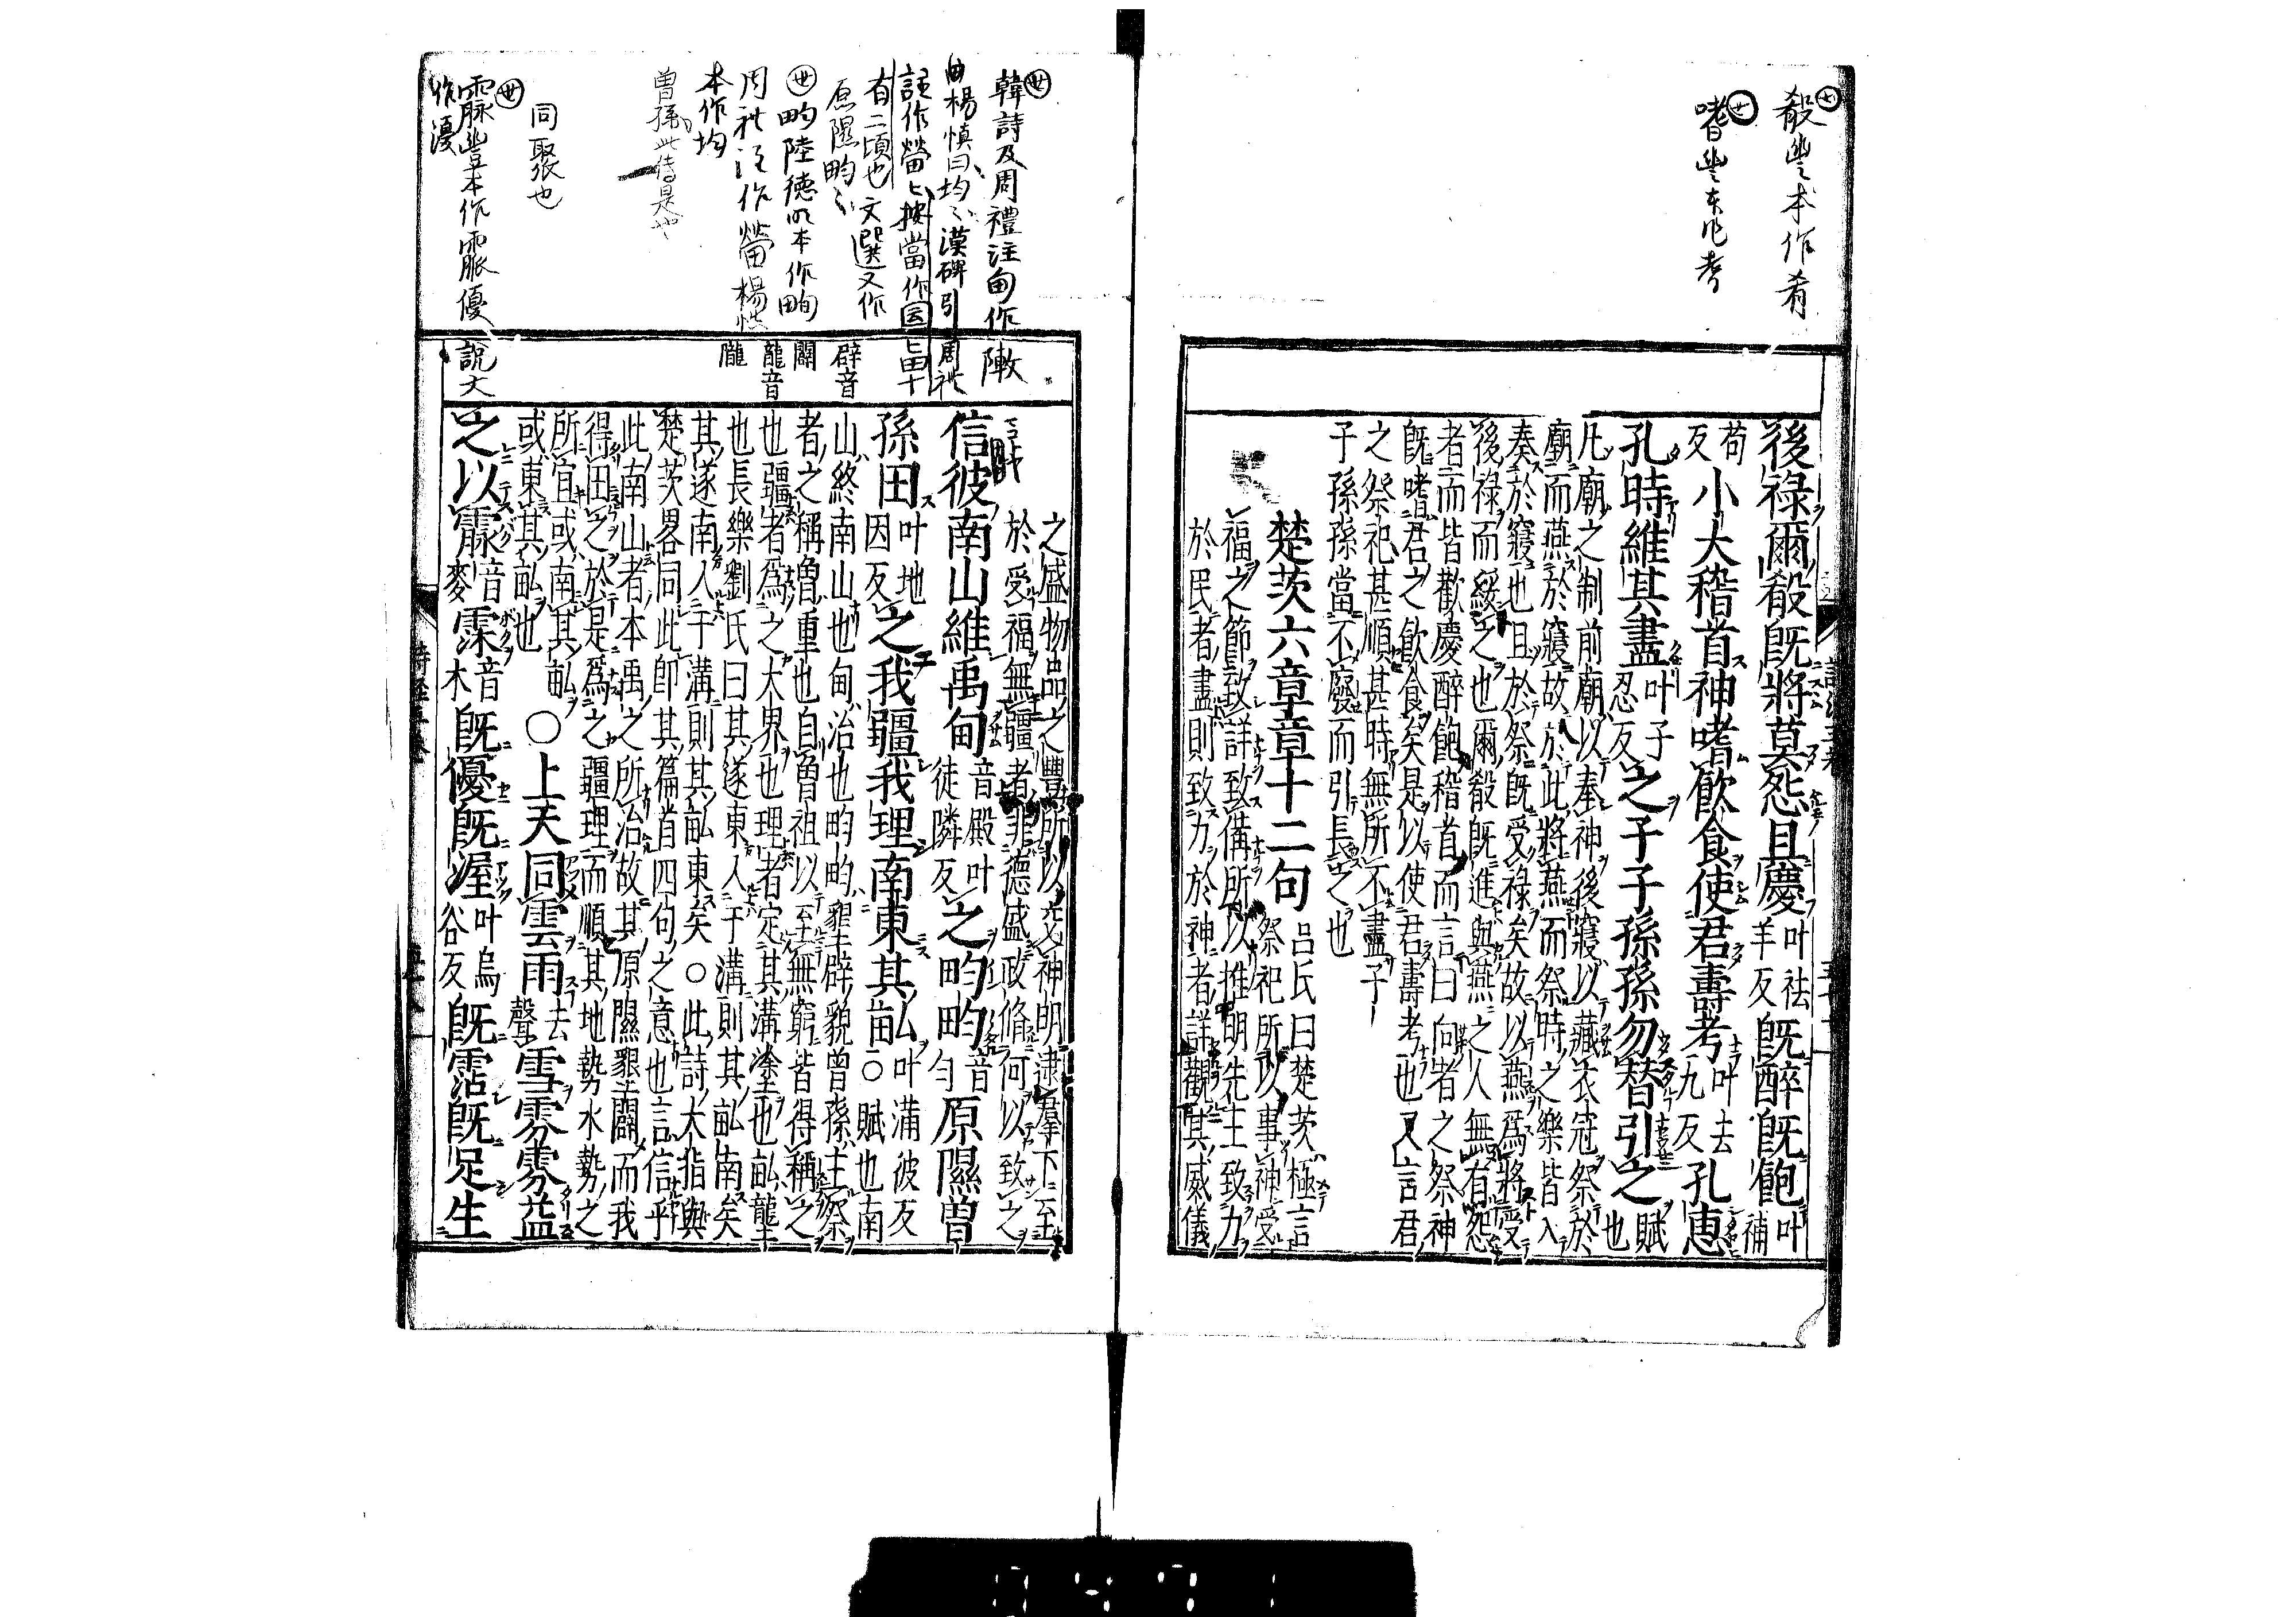 殽豐本作肴
嗜豐本作耆
後祿爾殽既將莫怨且慶叶祛羊反既醉既飽叶補
苟反小大稽首神嗜飲食使君壽考叶去九反孔惠
孔時維其盡叶子忍反之子子孫孫勿替引之賦也
凡廟之制前廟以奉神後寢以藏衣冠祭於
廟而燕於寢故於此將燕而祭時之樂皆入
奏於寢也且於祭既受祿矣故以燕爲將受
後祿而綏之也爾殽既進與燕之人無有怨
者而皆歡慶醉飽稽首而言曰向者之祭神
既嗜君之飲食矣是以使君壽考也又言君
之祭祀甚順甚時無所不盡子
子孫孫當不廢而引長之也
楚茨六章章十二句呂氏曰楚茨極言祭祀所以事神受
福之節致詳致備所以推明先王致力
於民者盡則致力於神者詳觀其威儀
韓詩及周禮注甸作敶
楊慎曰均漢碑引周礼
有二頃也文選又作
原隰畇
畇陸德明本作畇
周礼注作營楊慎
本作均
同聚也
霢豐本作霡優說文
作瀀
辟音
闢
龍音
隴
之盛物品之豐所以交神明逮群下至
於受福無疆者非德盛政脩何以致之
信彼南山維禹甸音殿叶徒隣反之畇畇音勻原隰曾
孫田叶地因反之我疆我理南東其畝叶蒲彼反○賦也南
山終南山也甸治也畇畇墾辟貌曾孫主祭
者之稱曾重也自曾祖以至無窮皆得稱之
也疆者爲之大界也理者定其溝塗也畝龍
也長樂劉氏曰其遂東入于溝則其畝南矣
其遂南入于溝則其畝東矣○此詩大指與
楚茨畧同此即其篇首四句之意也言信乎
此南山者本禹之所治故其原隰墾闢而我
得田之於是爲之疆理而順其地勢水勢之
所宜或南其畝
或東其畝也○上天同雲雨去聲雪雰雰益
之以霢音麥霂音木既優既渥叶烏谷反既霑既足生